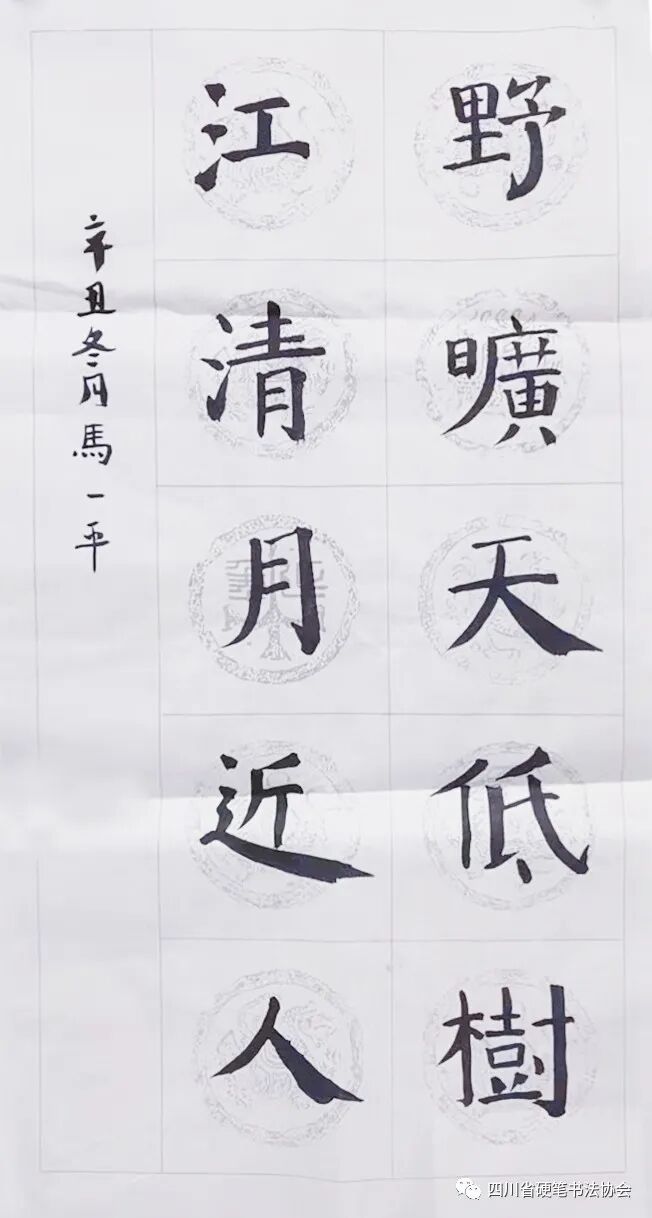 野曠天低樹
江清月近人
辛丑冬月馬一平
四川省硬笔书法协会